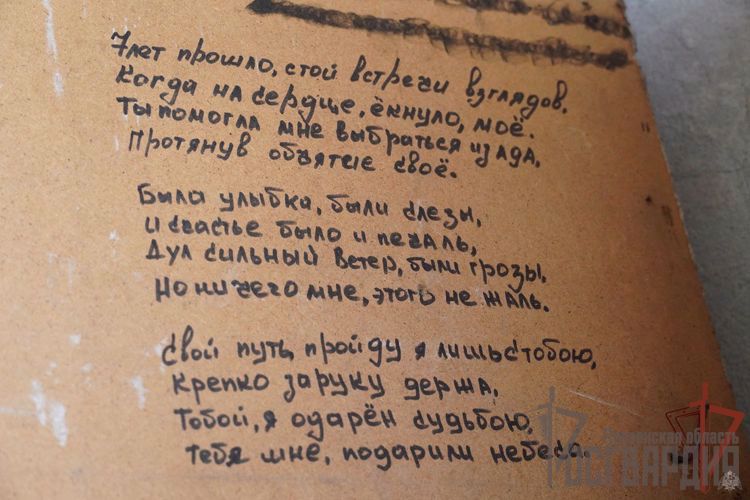 7лет прошло, стой встречи взглядов.
Когда на сердце, ёкнуло, моё.
Ты помогла мне выбраться из ада,
Протянув объятие своё.
Была улыбка, были слезы,
и счастье было и печаль,
Дул сильный ветер, были грозы,
Но ничего мне, этого не жаль.
Свой путь, пройду я лишь стобою,
Крепко заруку держа,
Тобой, я одарён судьбою.
Тебя мне, подарили небеса.
область
РОСГВАРДИЯ